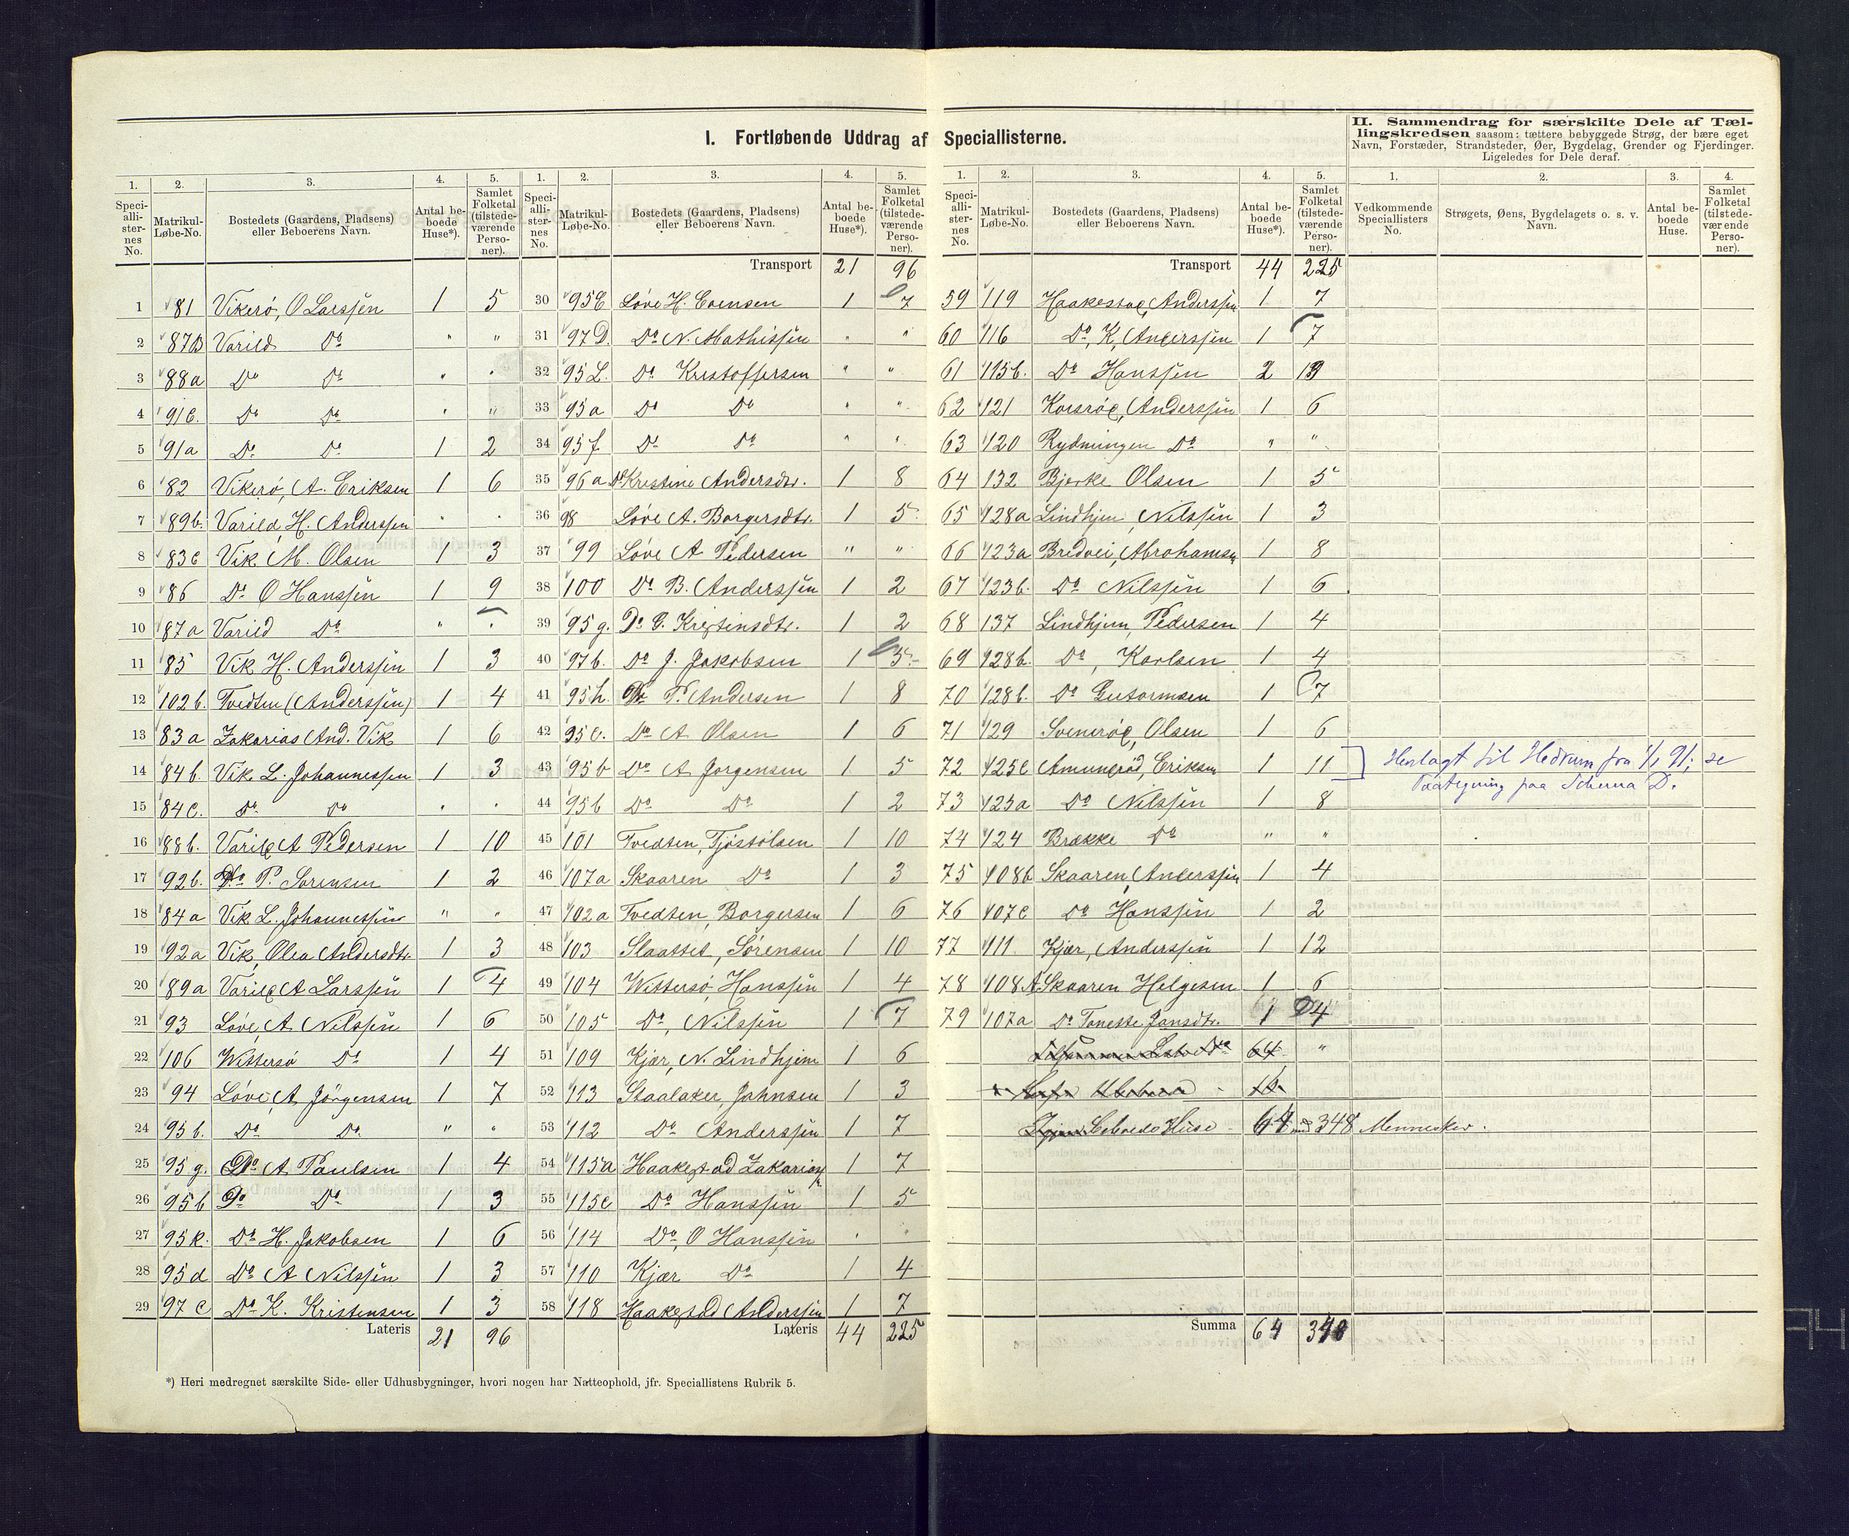 I. Fortløbende Uddrag af Speciallisterne.
II. Sammendrag for særskilte Dele af Tællingskredsen saasom: tættere bebyggede Strøg, der bære eget Navn, Forstæder, Strandsteder, Øer, Bygdelag, Grender og Fjerdinger. Ligeledes for Dele deraf.
1. 2. 3. 4. 5.
Speciallisternes No. Matrikul-Løbe-No. Bostedets (Gaardens, Pladsens) eller Beboerens Navn. Antal beboede Huse*). Samlet Folketal (tilstedeværende Personer).
1 81 Vikerø, O Larssen 1 5
2 87B Varild Do " "
3 88a Do Do " "
4 91c. Do Do " "
5 91a Do Do 1 2
6 82 Vikerø, A. Eriksen 1 6
7 89b. Varild, H. Anderssen " "
8 83c Vik M. Olsen 1 3
9 86 Do O Hanssen 1 9
10 87a Varild Do " "
11 85 Vik H. Anderssen 1 3
12 102b. Tvedten (Anderssen) 1 4
13 83a Zakarias And. Vik 1 6
14 84b. Vik L. Johannessen 1 3
15 84c. Do Do " "
16 88b. Varild A Pedersen 1 10
17 92b. Do P. Sorensen 1 2
18 84a Vik L. Johannessen " "
19 92a Vik, Olea Andersdtr 1 3
20 89a Varild A Larssen 1 4
21 93 Løve, A Nilssen 1 6
22 106 Wittersø Do 1 4
23 94 Løve, A Jørgensen 1 7
24 95b. Do Do " "
25 95g. Do A Paulsen 1 4
26 95b Do Do 1 3
27 95k. Do H. Jakobsen 1 6
28 95d Do A Nilssen 1 3
29 97c Do K. Kristensen 1 3
Lateris 21 96
1. 2. 3. 4. 5.
Speciallisternes No. Matrikul-Løbe-No. Bostedets (Gaardens, Pladsens) eller Beboerens Navn. Antal beboede Huse*). Samlet Folketal (tilstedeværende Personer).
Transport 21 96
30 95C Løve H. Evensen 1 7
31 97D. Do N. Mathissen " "
32 95L. Do Kristoffersen " "
33 95a Do Do " "
34 95f. Do Do " "
35 96a Do Kristine Andersdtr. 1 8
36 98 Løve A. Borgersdtr. 1 5
37 99 Løve A Pedersen " "
38 100 Do B. Anderssen 1 2
39 95g. Do G. Kristinsdtr. 1 2
40 97b. Do J. Jakobsen 1 5
41 95h. Do P. Andersen 1 8
42 95c. Do A Olsen 1 6
43 95b Do A Jorgensen 1 5
44 95b Do Do 1 2
45 101 Tvedten, Tjøstolsen 1 10
46 107a Skaaren Do 1 3
47 102a Tvedten, Borgersen 1 6
48 103 Slaattet, Sørensen 1 10
49 104 Wittersø, Hanssen 1 4
50 105 Do, Nilssen 1 7
51 109 Kjær, N. Lindhjem 1 6
52 113 Staalaker, Johnsen 1 3
53 112 Do Anderssen 1 7
54 115a Haakestad Zakarias 1 7
55 115c Do Hanssen 1 5
56 114 Do, O Hanssen " "
57 110 Kjær Do 1 4
58 118 Haakestad Anderssen 1 7
Lateris 44 225
1. 2. 3. 4. 5.
Speciallisternes No. Matrikul-Løbe-No. Bostedets (Gaardens, Pladsens) eller Beboerens Navn. Antal beboede Huse*). Samlet Folketal (tilstedeværende Personer).
Transport 44 225
59 119 Haakestad, Anderssen 1 7
60 116 Do, K, Anderssen 1 7
61 115b. Do Hanssen 2 13
62 121 Korsrød, Anderssen 1 6
63 120 Rydningen Do " "
64 132 Bjerke Olsen 1 5
65 128a Lindhjem, Nilssen 1 3
66 123a Bredvei, Abrahamsn 1 8
67 123b. Do Nilssen 1 6
68 137 Lindhjem, Pedersen 1 4
69 128b. Do, Karlsen 1 4
70 128b. Do Gutormsen 1 7
71 129 Svenerød, Olsen 1 6
72 125c Amundrød, Eriksen 1 11
73 123a Do Nilssen 1 8
74 124 Brække Do " "
75 108b Skaaren, Anderssen 1 4
76 107c Do Hanssen 1 2
77 111 Kjær, Anderssen 1 12
78 108A Skaaren Helgesen 1 6
79 107a Do Tonette Jansdtr. 1 4
64 "
beboede Huse 64 348 Mennesker.
Summa 64 348
1. 2. 3. 4.
Vedkommende Speciallisters No. Strøgets, Øens, Bygdelagets o. s. v. Navn. Antal beboede Huse. Samlet Folketal (tilstedeværende Personer).
Henlagt til Hedrum fra 1/1 91; se
Paategning paa Schema D.
*) Heri medregnet særskilte Side- eller Udhusbygninger, hvori nogen har Natteophold, jfr. Speciallistens Rubrik 5.